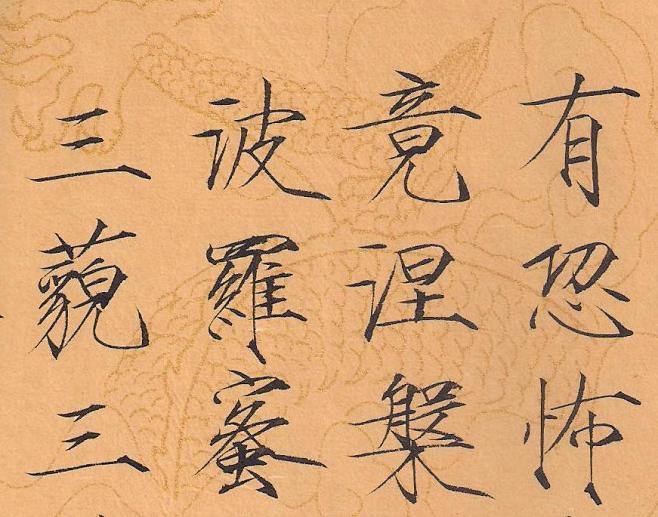 有恐怖
竟涅槃
波羅蜜
三藐三